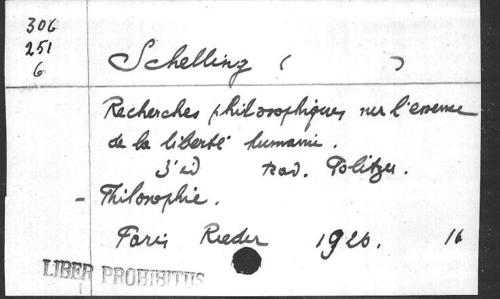 306
251
6
Schelling ( )
Recherches philosophiques sur l'essence
de la liberté humaine.
3' éd trad. Politzer.
- Philosophie.
Paris Rieder 1926. 16
LIBER PROHIBITUS